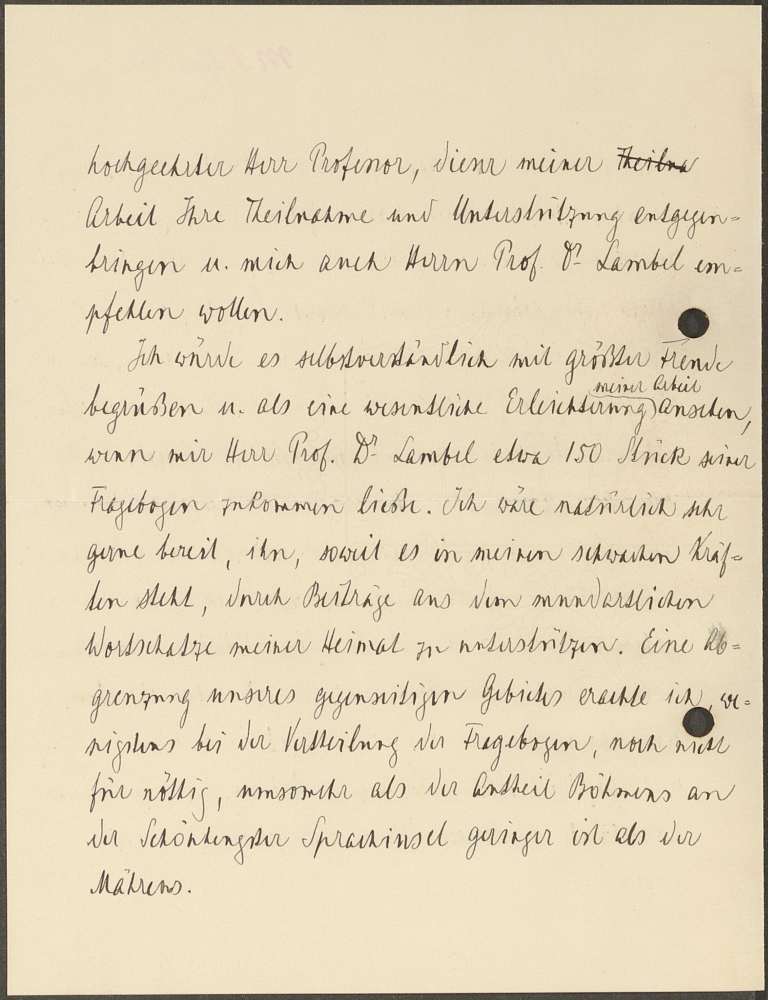 hochgeehrter Herr Professor, dieser meiner Theilna
Arbeit Ihre Theilnahme und Unterstützung entgegen=
bringen u. mich auch Herrn Prof. Dr. Lambel em=
pfehlen wollen.
Ich würde es selbstverständlich mit größter Freude
meiner Arbeit
begrüßen u. als eine wesentliche Erleichterung ansehen,
wenn mir Herr Prof. Dr. Lambel etwa 150 Stück seiner
Fragebogen zukommen ließe. Ich wäre natürlich sehr
gerne bereit, ihn, soweit es in meinen schwachen Kräf=
ten steht, durch Beiträge aus dem mundartlichen
Wortschatze meiner Heimat zu unterstützen. Eine Ab=
grenzung unseres gegenseitigen Gebietes erachte ich, we=
nigstens bei der Vertheilung der Fragebogen, noch nicht
für nöthig, umsomehr als der Antheil Böhmens an
der Schönhengster Sprachinsel geringer ist als der
Mährens.